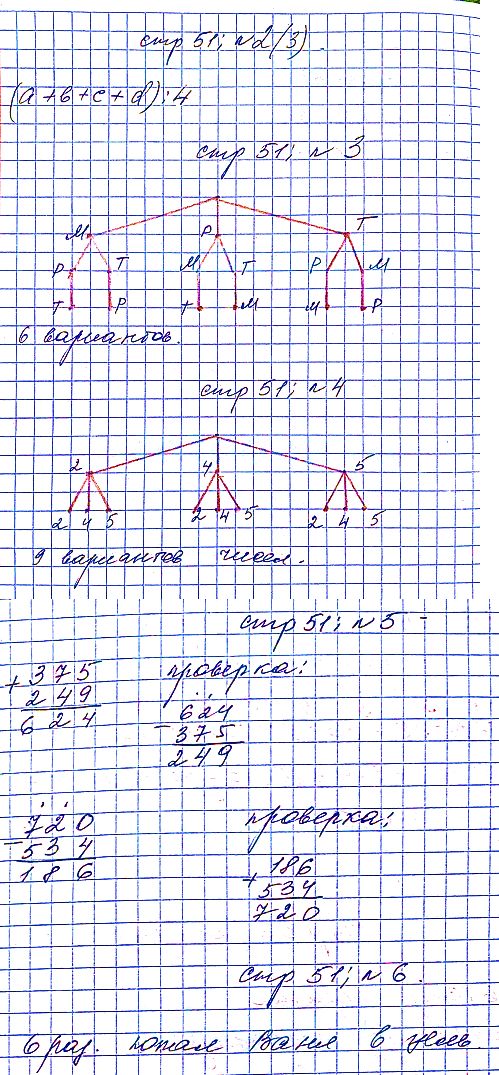 стр 51; №2(3).
(а+в+с+d):4
стр 51; №3
М Р Т
Р Т М Т Р М
Т Р т М М Р
6 вариантов.
стр 51; №4
2 4 5
2 4 5 2 4 5 2 4 5
9 вариантов чисел.
стр 51; №5
+375 проверка:
249
624
624
-375
249
-720 проверка:
534
186
+186
534
720
стр 51; №6.
6 раз. попал Ваня в цель.